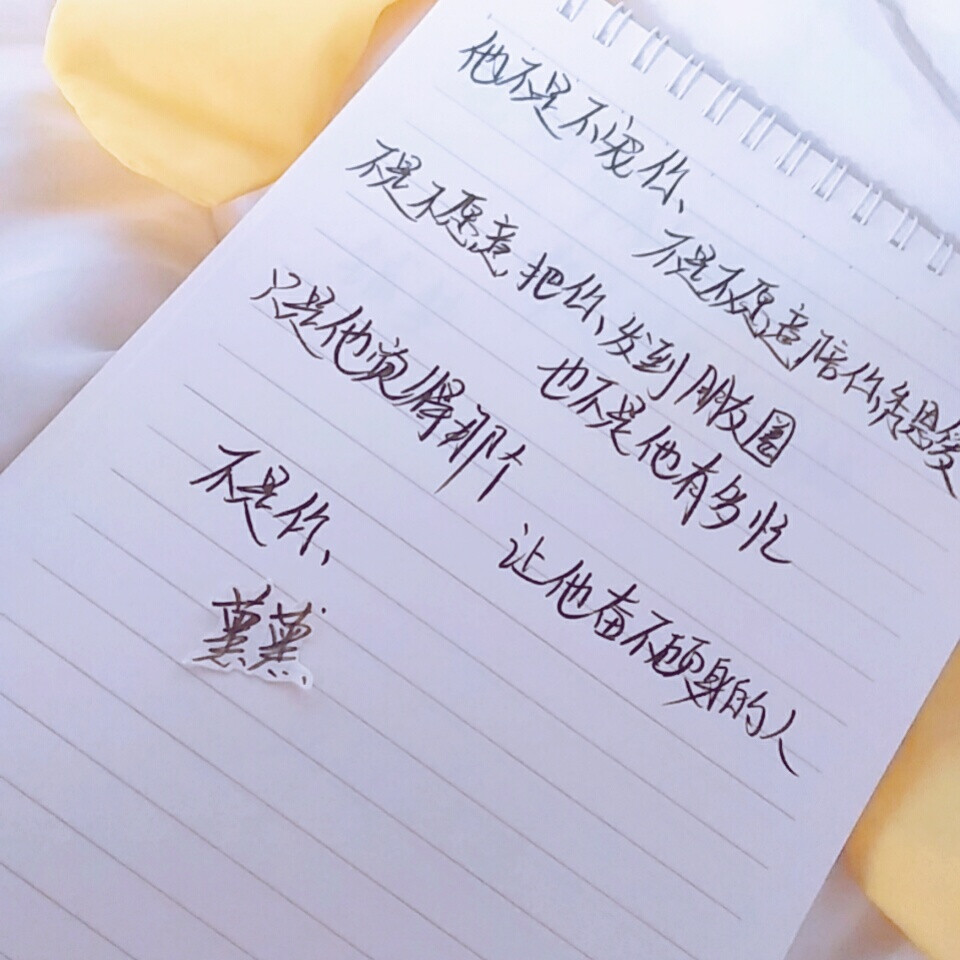 他不是不宠你、
不是不愿意陪你秀恩爱
不是不愿意把你发到朋友圈
也不是他有多忙
只是他觉得那个
让他奋不顾身的人
不是你、
薰薰